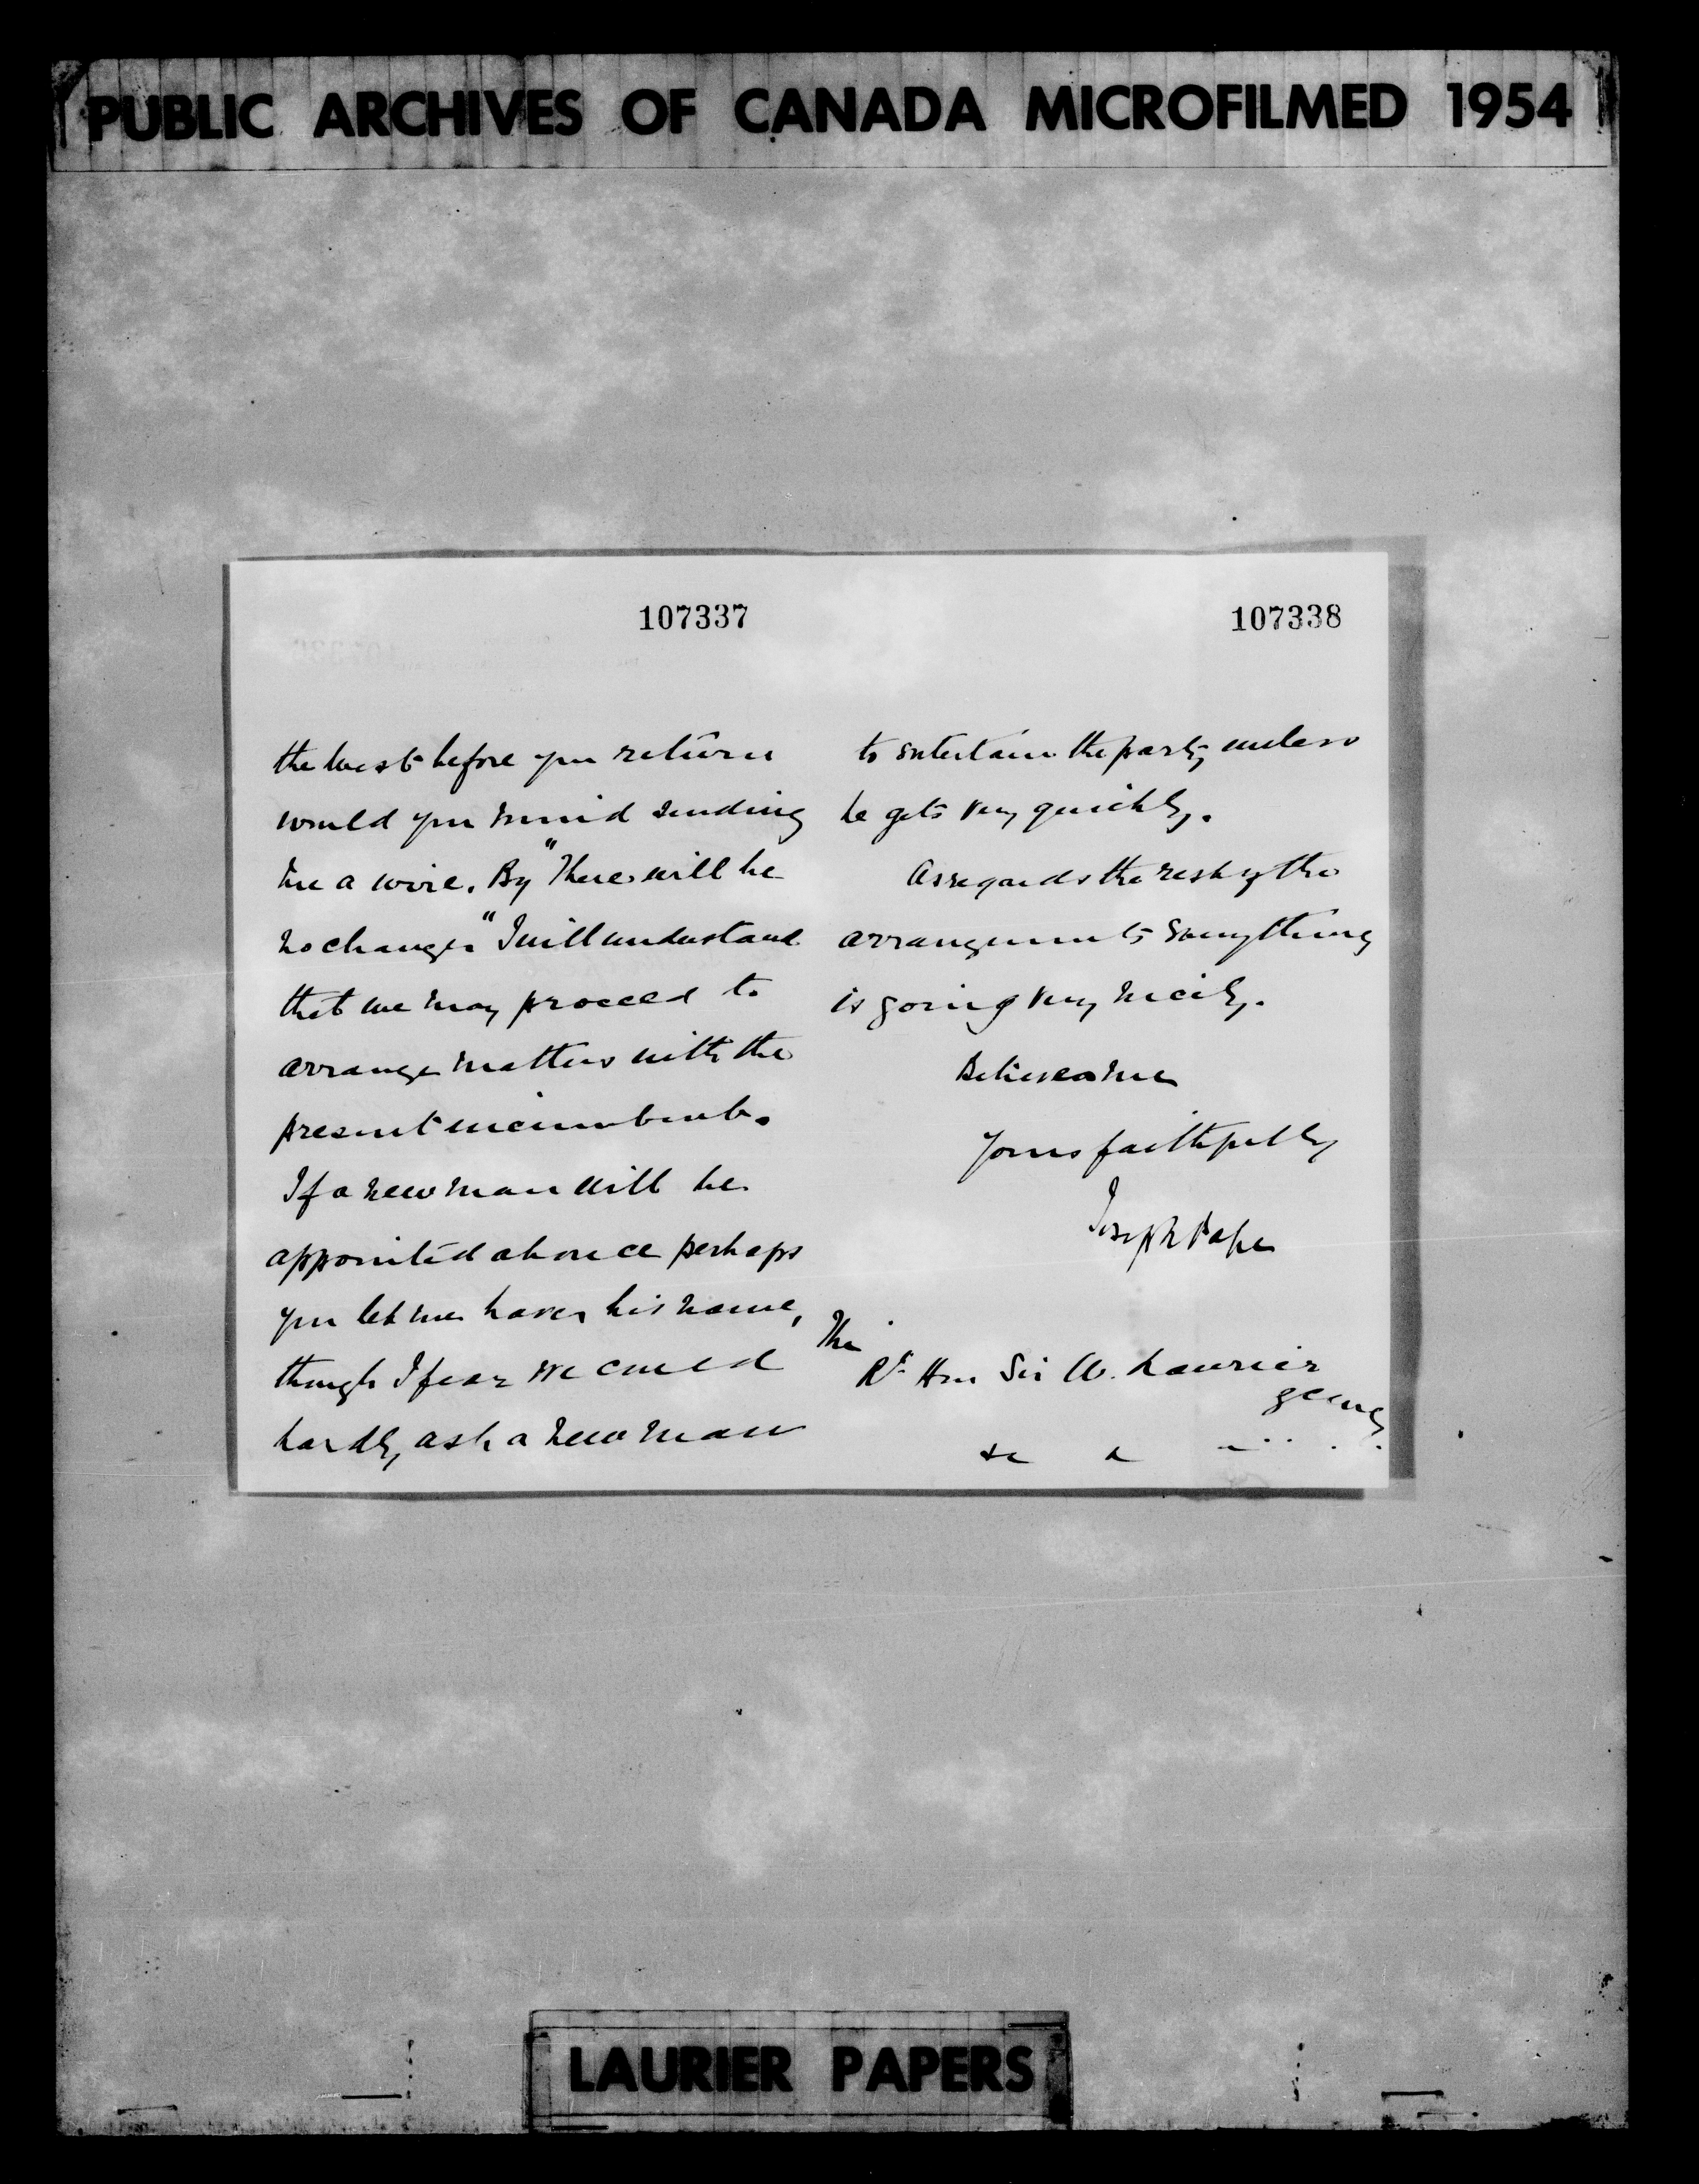 PUBLIC ARCHIVES OF CANADA MICROFILMED 1954
107337
the West before you return
would you mind sending
me a wire. By "There will be
no change" I will understand
that we may proceed to
arrange matters with the
present incumbent.
If a new man will be
appointed at once perhaps
you let me have his name,
though I fear we could
hardly ask a new man
107338
to entertain the party unless
he gets very quickly.
As regards the rest of the
arrangements everything
is going very nicely.
Believe me
Yours faithfully
Joseph Pope
The
Rt Hon Sir W. Laurier
&c &
LAURIER PAPERS